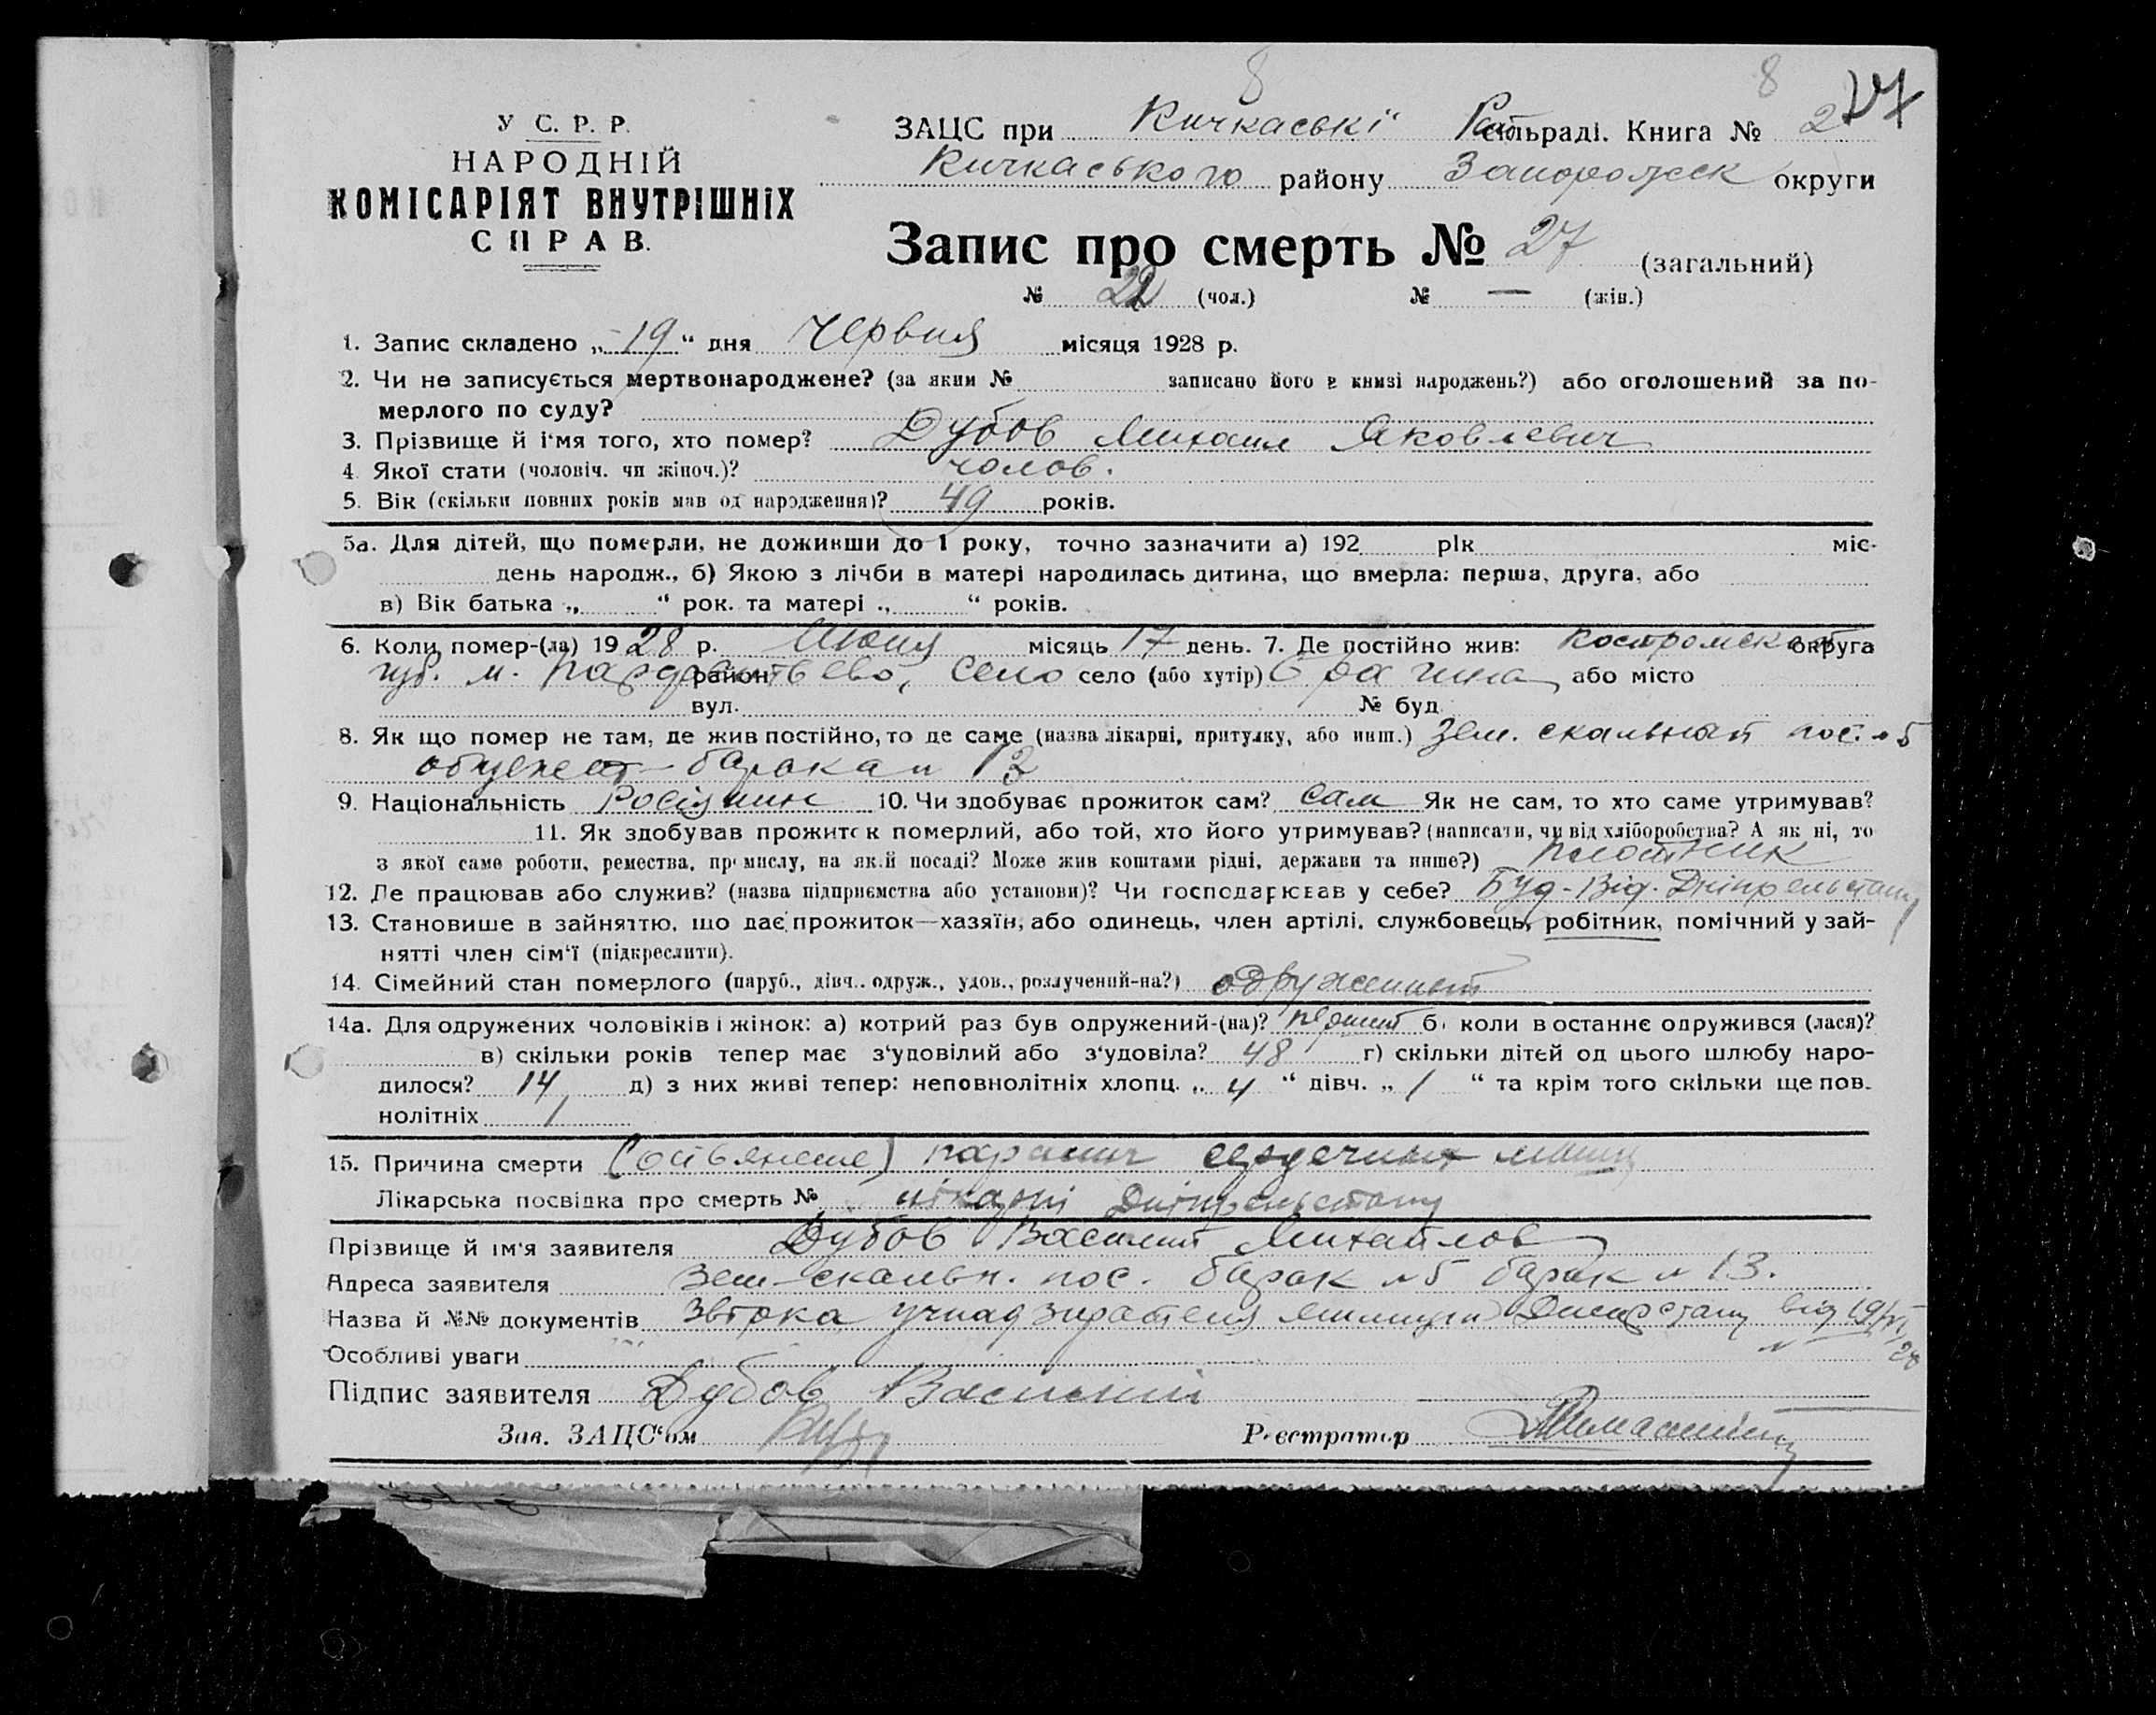 8
8
27
У С. Р. Р.
НАРОДНІЙ
КОМІСАРІЯТ ВНУТРІШНІХ
СПРАВ.
ЗАЦС при Кичкаські Рай сільраді. Книга № 2
Кичкаського району Запорожск округи
Запис про смерть № 27 (загальний)
№ 22 (чол.) № — (жін.)
1. Запис складено „19“ дня червня місяця 1928 р.
2. Чи не записується мертвонароджене? (за яким № записано його в книзі народжень?) або оголошений за по-
мерлого по суду?
3. Прізвище й ім'я того, хто помер? Дубов Михаил Яковлевич
4 Якої стати (чоловіч. чи жіноч.)? чолов.
5. Вік (скільки повних років мав од народження)? 49 років.
5а. Для дітей, що померли, не доживши до 1 року, точно зазначити а) 192 рік міс.
день народж., б) Якою з лічби в матері народилась дитина, що вмерла: перша, друга, або
в) Вік батька „ “ рок. та матері „ “ років.
6. Коли помер-(ла) 1928 р. Июня місяць 17 день. 7. Де постійно жив: Костромская округа
губ. м. район село село (або хутір) або місто
вул. № буд.
8. Як що помер не там, де жив постійно, то де саме (назва лікарні, притулку, або инш.) Зем. скальный пос. №5
барака № 13
9. Національність Росіянин 10. Чи здобуває прожиток сам? Сам Як не сам, то хто саме утримував?
11. Як здобував прожиток померлий, або той, хто його утримував? (написати, чи від хліборобства? А як ні, то
з якої саме роботи, ремества, промислу, на якій посаді? Може жив коштами рідні, держави та инше?) плотник
12. Де працював або служив? (назва підприємства або установи)? Чи господарював у себе? Буд-Від. Дніпрельстану
13. Становище в зайняттю, що дає прожиток—хазяїн, або одинець, член артілі, службовець, робітник, помічний у зай-
нятті член сім'ї (підкреслити).
14. Сімейний стан померлого (паруб., дівч., одруж., удов., розлучений-на?) одружений
14а. Для одружених чоловіків і жінок: а) котрий раз був одружений-(на)? перший б) коли востаннє одружився (лася)?
в) скільки років тепер має з'удовілий або з'удовіла? 48 г) скільки дітей од цього шлюбу наро-
дилося? 14 д) з них живі тепер: неповнолітніх хлопц. „ 4 “ дівч. „ 1 “ та крім того скільки ще пов-
нолітніх 1
15. Причина смерти паралич сердечных мышц
Лікарська посвідка про смерть № лікарні Дніпрельстану
Прізвище й ім'я заявителя Дубов Василий Михайлов
Адреса заявителя Зем-скальн. пос. барак №5 барак № 13.
Назва й №№ документів учнадзирателя милиции Днепрстану від 19/VI 28
Особливі уваги
Підпис заявителя Дубов Василий
Зав. ЗАЦС'ом Реєстратор